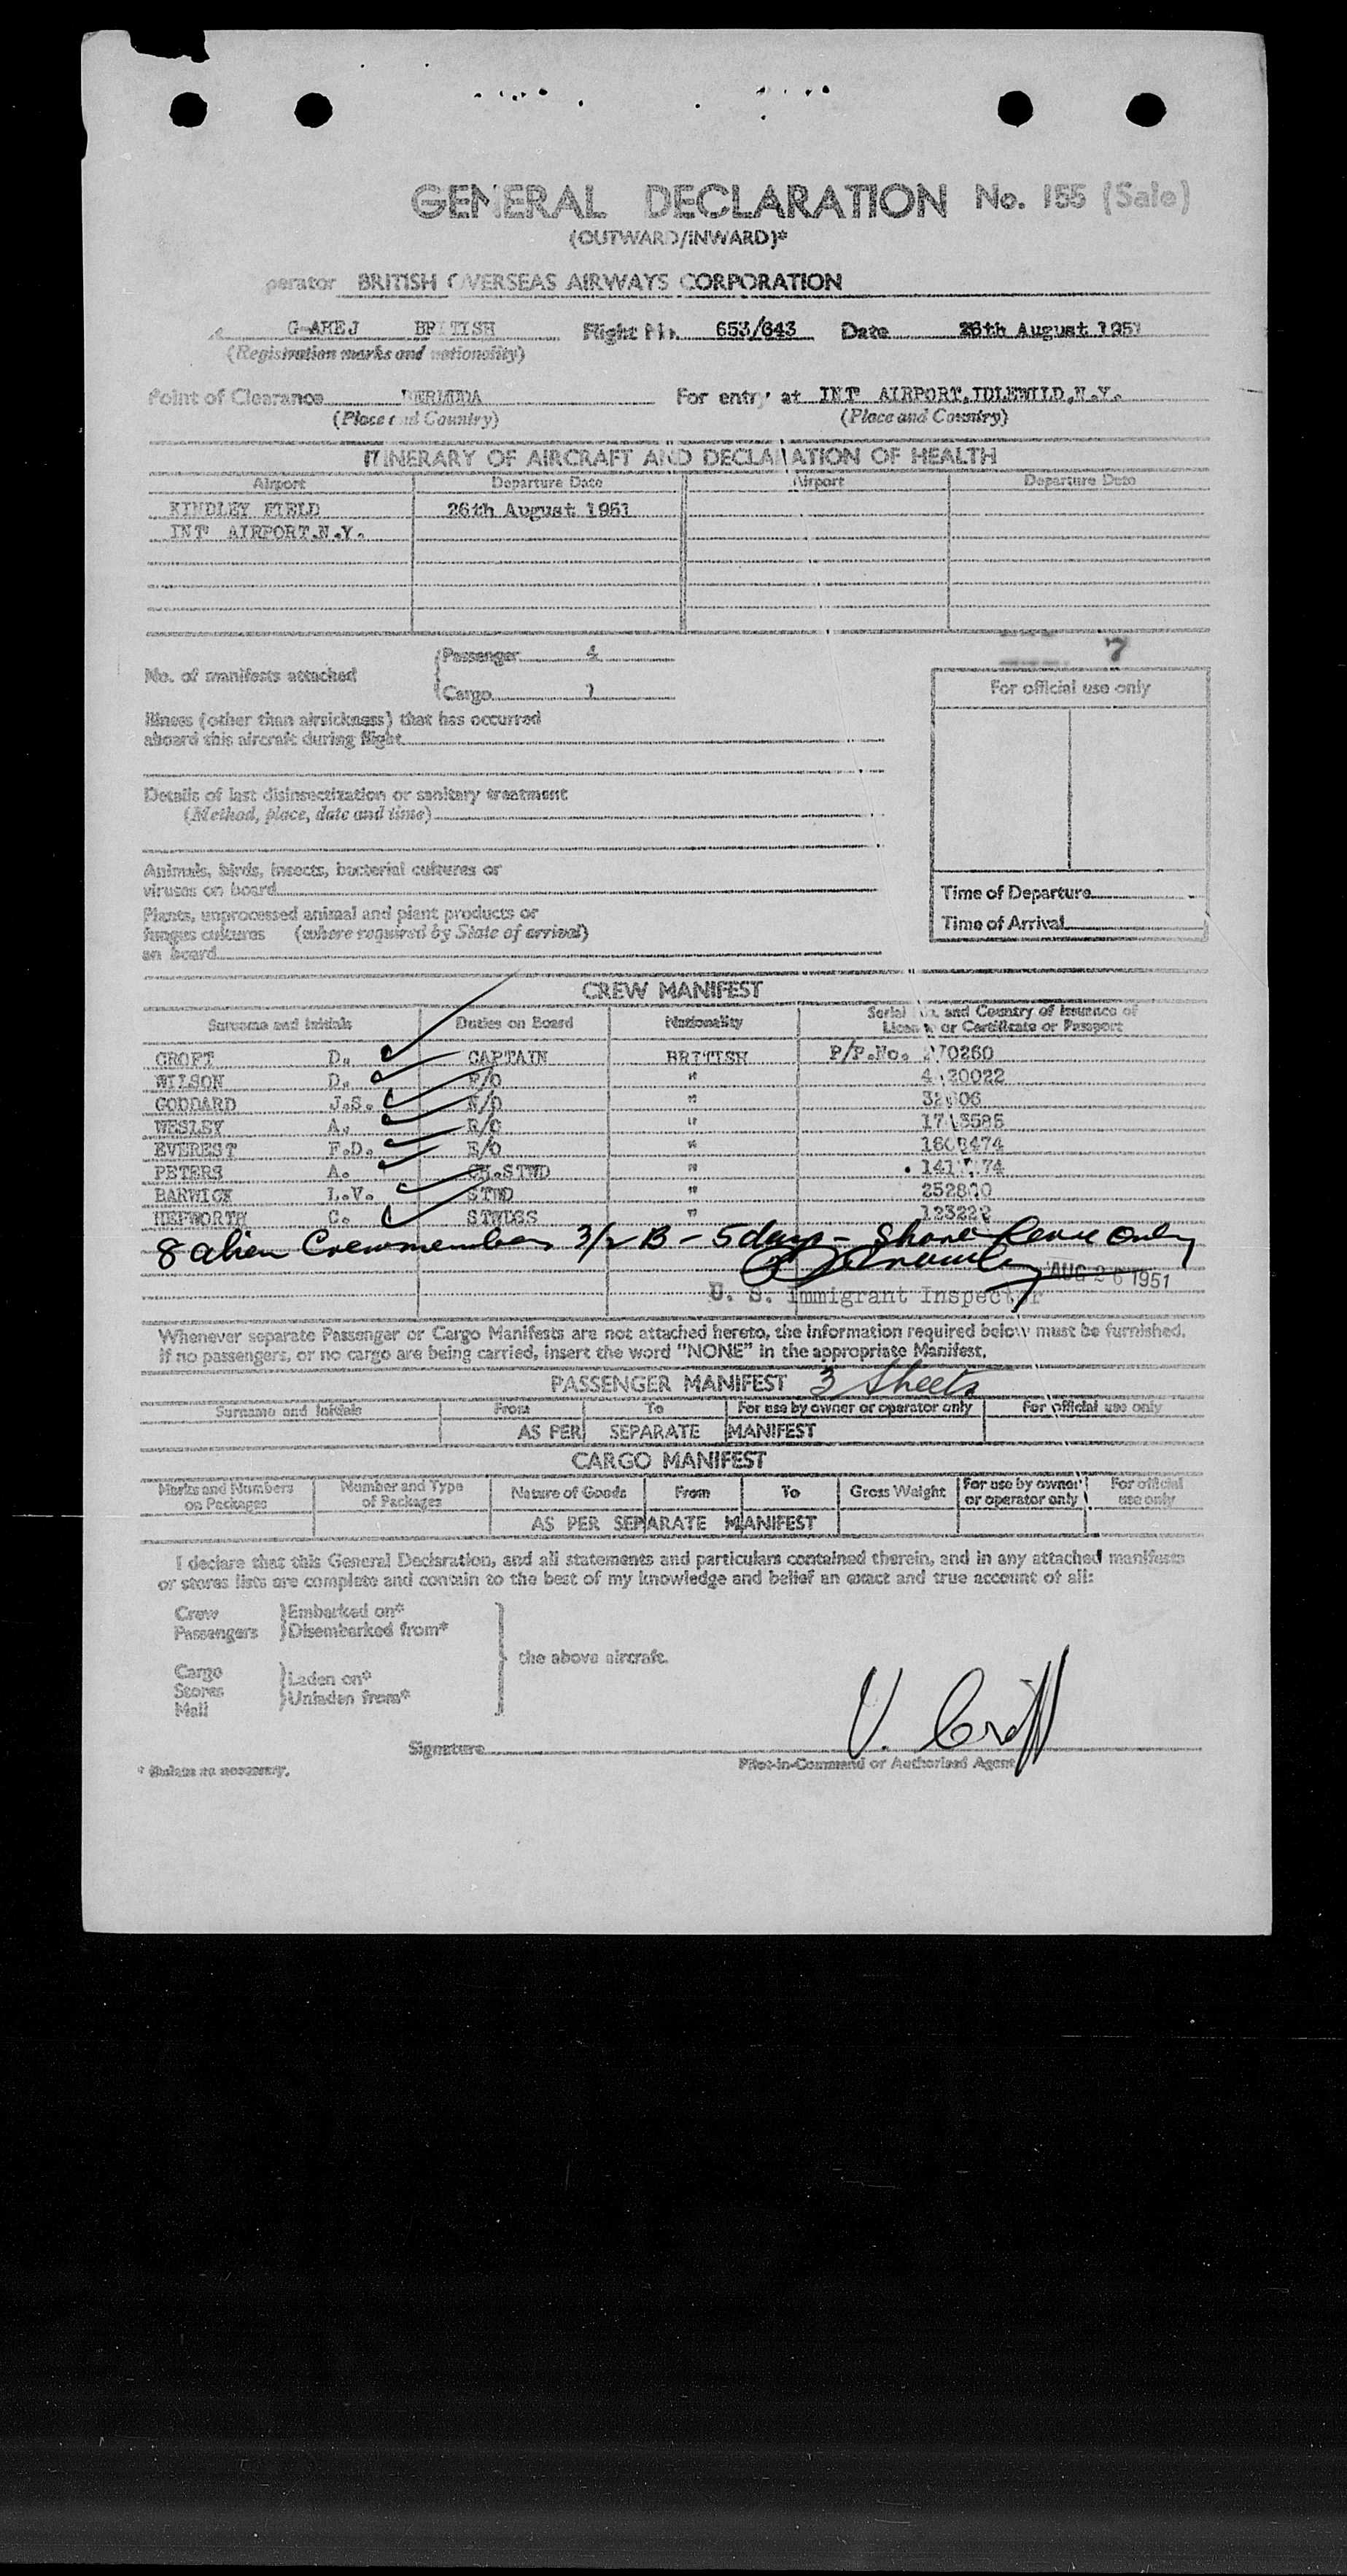 GENERAL DECLARATION No. 155 (Sale)
(OUTWARD/INWARD)*
perator BRITISH OVERSEAS AIRWAYS CORPORATION
G-AHEJ BRITISH Flight No. 653/643 Date 26th August 1951
(Registration marks and nationality)
Point of Clearance BERMUDA For entry at INT AIRPORT, IDLEWILD, N.Y.
(Place and Country) (Place and Country)
ITINERARY OF AIRCRAFT AND DECLARATION OF HEALTH
Airport Departure Date Airport Departure Date
KINDLEY FIELD 26th August 1951
INT AIRPORT.N.Y.
7
No. of manifests attached
Passenger 4
Cargo 1
For official use only
Illness (other than airsickness) that has occurred
aboard this aircraft during flight
Details of last disinsectization or sanitary treatment
(Method, place, date and time)
Animals, birds, insects, bacterial cultures or
viruses on board
Time of Departure
Plants, unprocessed animal and plant products or
fungus cultures (where required by State of arrival)
on board
Time of Arrival
CREW MANIFEST
Surname and Initials Duties on Board Nationality Serial No. and Country of Issuance of
Licence or Certificate or Passport
CROFT D. CAPTAIN BRITISH P/P.No. 70260
WILSON D. F/O " 4 20022
GODDARD J.S. N/O " 32 06
WESLEY A. R/O " 17 3585
EVEREST F.D. E/O " 160 474
PETERS A. CH.STWD " 141 74
BARWICK L.V. STWD " 2528 0
HEPWORTH C. STWDSS " 12322
8 alien Crewmembers 3/2 B - 5 days - Shore Leave Only
AUG 26 1951
U. S. Immigrant Inspector
Whenever separate Passenger or Cargo Manifests are not attached hereto, the information required below must be furnished.
If no passengers, or no cargo are being carried, insert the word "NONE" in the appropriate Manifest.
PASSENGER MANIFEST 3 sheets
Surname and Initials From To For use by owner or operator only For official use only
AS PER SEPARATE MANIFEST
CARGO MANIFEST
Marks and Numbers on Packages Number and Type of Packages Nature of Goods From To Gross Weight For use by owner or operator only For official use only
AS PER SEPARATE MANIFEST
I declare that this General Declaration, and all statements and particulars contained therein, and in any attached manifests
or stores lists are complete and contain to the best of my knowledge and belief an exact and true account of all:
Crew Embarked on*
Passengers Disembarked from*
the above aircraft.
Cargo
Stores Laden on*
Mail Unladen from*
Signature V. Croft
Pilot-in-Command or Authorised Agent
* Delete as necessary.